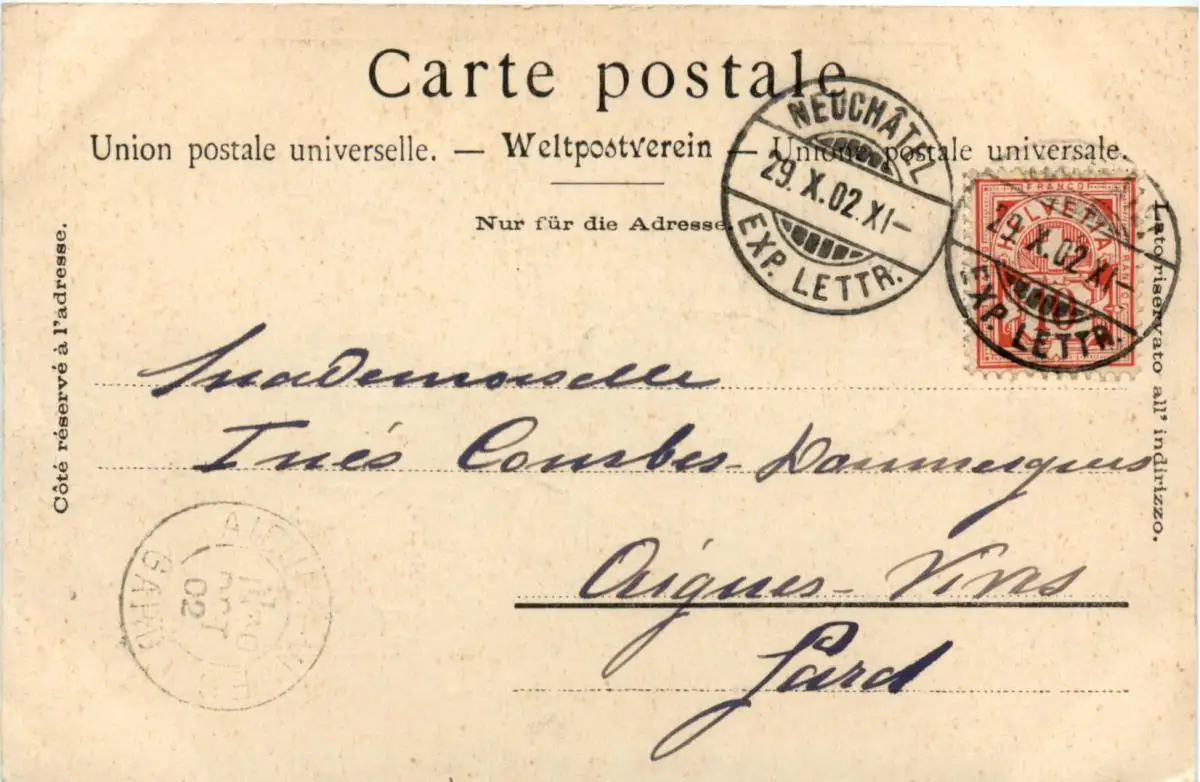 Carte postale
Union postale universelle. — Weltpostverein — Unione postale universale.
Nur für die Adresse.
Côté réservé à l'adresse.
Lato riservato all' indirizzo.
NEUCHÂTEL
29. X. 02. XI–
EXP. LETTR.
FRANCO
HELVETIA
FRANCO
10
29. X. 02 XI–
EXP. LETTR.
Mademoiselle
Inés Combes-Daumesques
Aigues-Vives
Gard
GARD
02